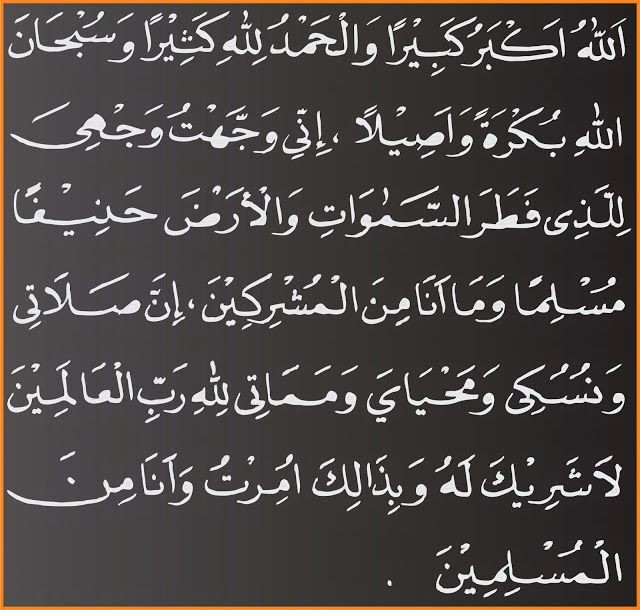 اَللّٰهُ اَكْبَرُ كَبِيْرًا وَالْحَمْدُ لِلّٰهِ كَثِيْرًا وَسُبْحَانَ
اللّٰهِ بُكْرَةً وَاَصِيْلًا ، إِنِّي وَجَّهْتُ وَجْهِيَ
لِلَّذِى فَطَرَ السَّمٰوَاتِ وَالْأَرْضَ حَنِيْفًا
مُسْلِمًا وَمَا اَنَا مِنَ الْمُشْرِكِيْنَ ، إِنَّ صَلَاتِى
وَنُسُكِى وَمَحْيَايَ وَمَمَاتِى لِلّٰهِ رَبِّ الْعَالَمِيْنَ
لَا شَرِيْكَ لَهُ وَبِذَالِكَ اُمِرْتُ وَاَنَا مِنَ
الْمُسْلِمِيْنَ .